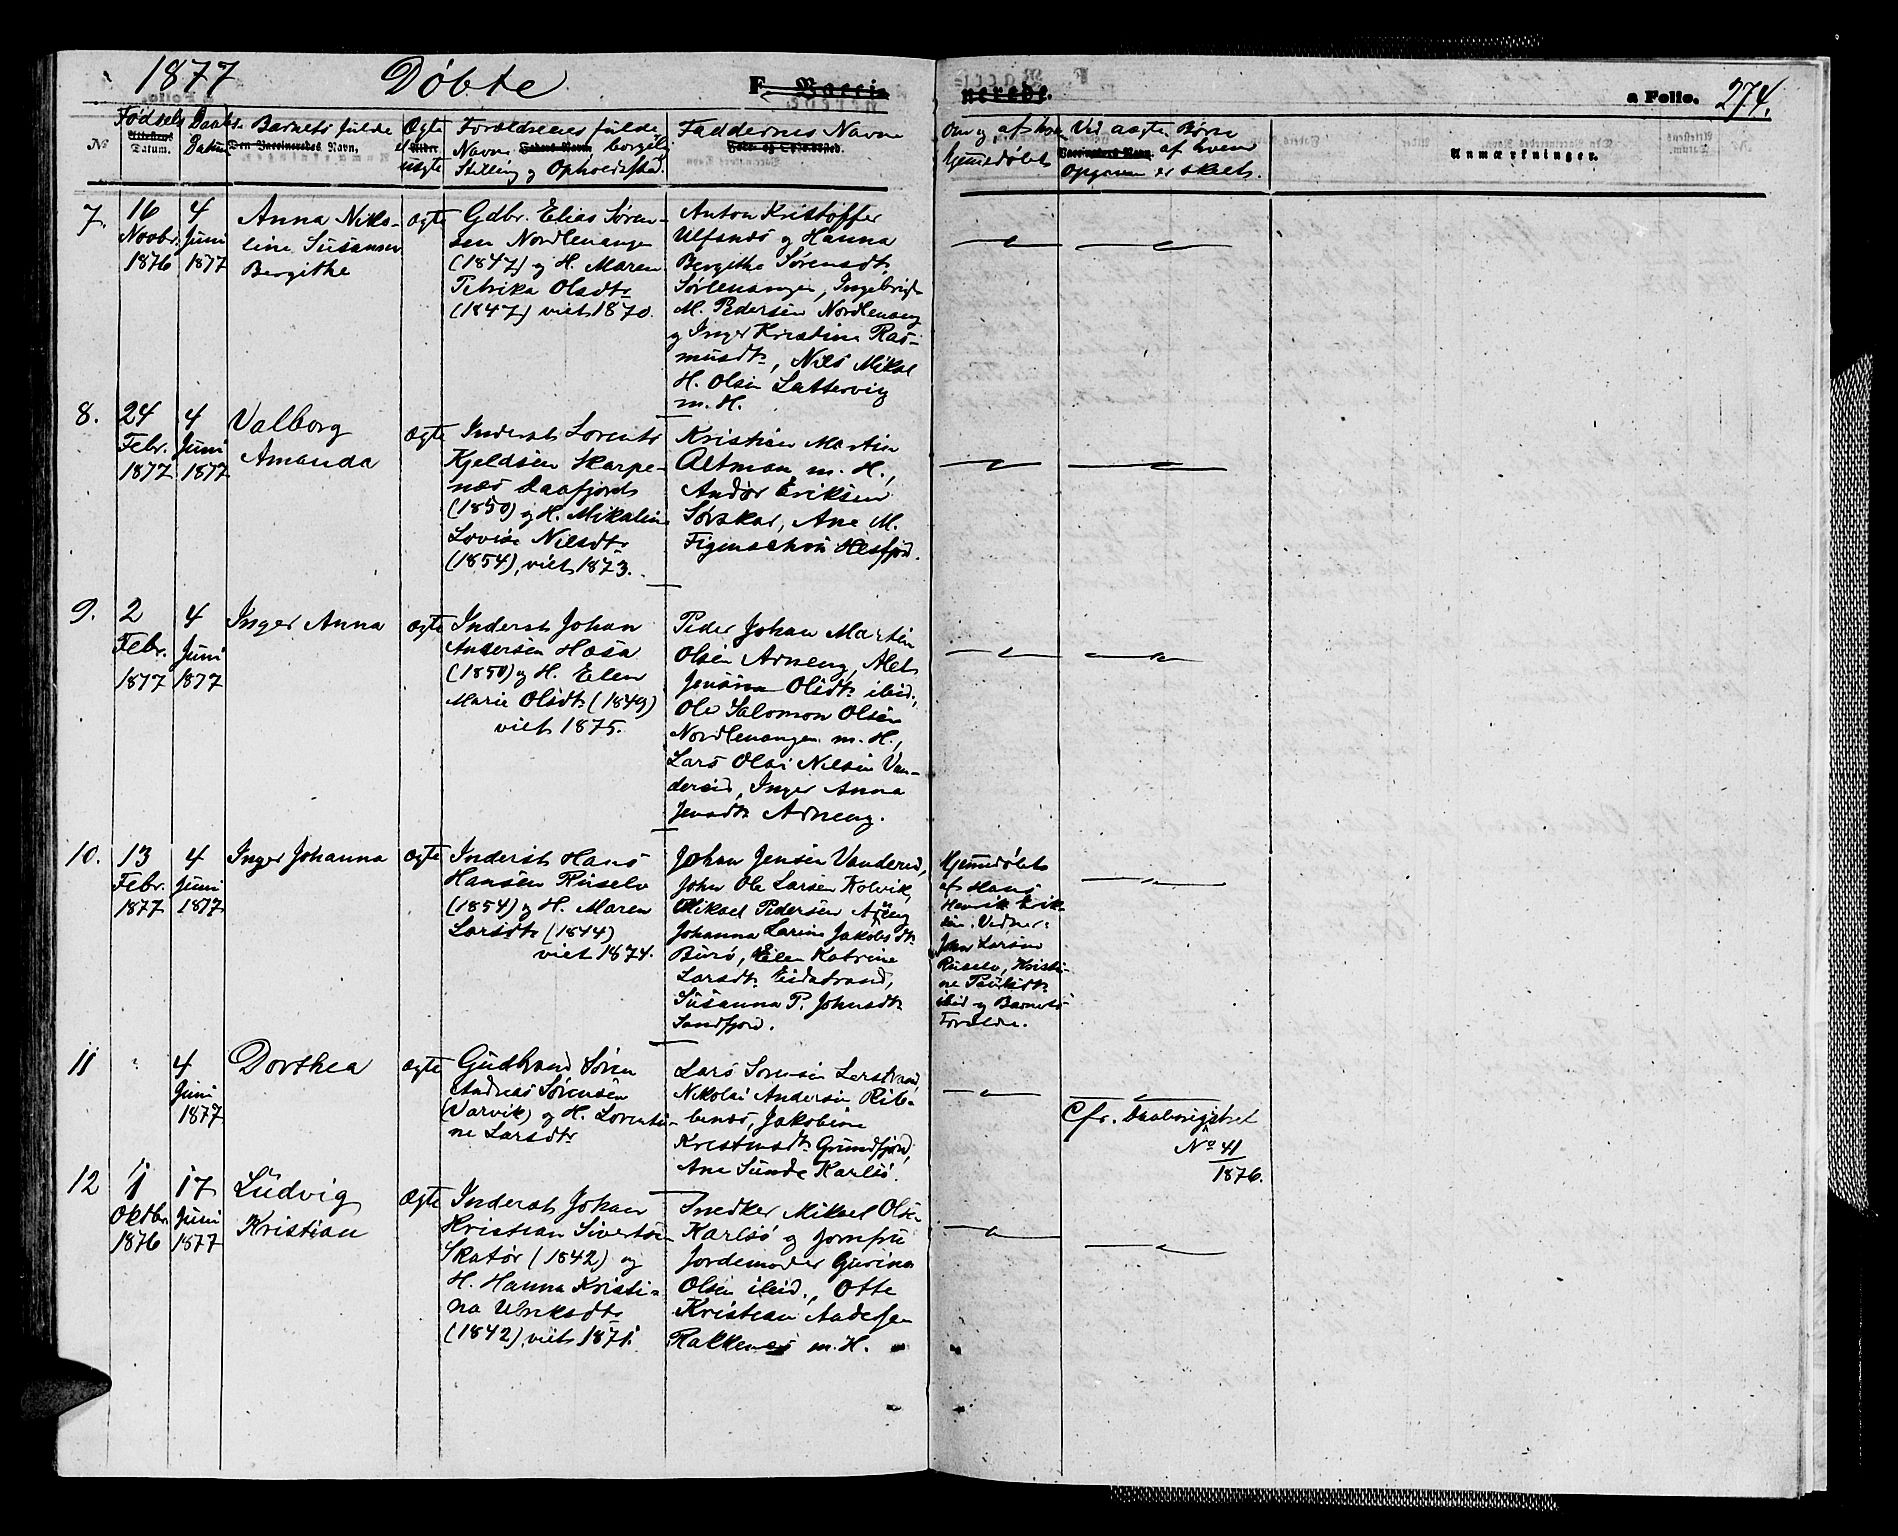 1877 Døbte F. Vacci-
nerede. a Folio. 274.
No.
Fødsels
Attestens
Datum.
Daabs-
Datum
Barnets fulde
Den Vaccineredes Navn,
Ægte
el.
Alder.
uægte
Forældrenes fulde
Navn Faders Navn borgelig
Stilling og Opholdssted.
Faddernes Navne
Fôde- og Opholdssted.
Om og af hvem
hjemmedøbt
Ved uægte Børn
Vaccinators Navn. af hvem
Opgaven er skeet.
Anmærkninger.
7.
16
Novbr.
1876
4
Juni
1877
Anna Niko-
line Susanna
Bergithe
Ægte
Gdbr. Elias Søren-
sen Nordlenangen
(1847) og H. Maren
Petrika Olsdtr
(1847) viet 1870.
Anton Kristoffer
Ulfsnæs og Hanna
Bergithe Sørensdtr
Sørlenangen, Ingebrigt
M. Pedersen Nordlenang
og Inger Kristine Ras-
musdtr, Nils Mikal
H. Olsen Lattervig
m. H.
8.
24
Febr.
1877
4
Juni
1877
Valborg
Amanda
Ægte
Inderst Lorents
Kjeldsen Skarpe-
næs Daafjord
(1850) og H. Mikaline
Lovise Nilsdtr
(1854), viet 1873.
Kristian Martin
Altman m. H.,
Andør Eriksen
Sørskar, Ane M.
Figenschou Hesfjord.
9.
2
Febr.
1877
4
Juni
1877
Inger Anna
Ægte
Inderst Johan
Andersen Hæsa
(1850) og H. Elen
Marie Olsdtr (1849)
viet 1875.
Peder Johan Martin
Olsen Arneng, Alet
Jensina Olsdtr ibid.,
Ole Salomon Olsen
Nordlenangen m. H.,
Lars Olai Nilsen Van-
dereid, Inger Anna
Jensdtr Arneng.
10.
13
Febr.
1877
4
Juni
1877
Inger Johanna
Ægte
Inderst Hans
Hansen Russelv
(1854) og H. Maren
Larsdtr (1844)
viet 1874.
Johan Jensen Vandereid,
John Ole Larsen Kolvik,
Mikael Pedersen Arneng
Johanna Larine Jakobsdtr
Burø, Elen Katrine
Larsdtr Eidstrand,
Susanna P. Johnsdtr
Sandfjord.
Hjemmedøbt
af Hans
Henrik Erik-
sen. Vidner:
John Larsen
Russelv, Kristi-
ne Paulsdtr
ibid og Barnets
Forældre.
11
4
Juni
1877
Dorthea
Ægte
Gudbrand Søren
Andreas Sørensen
(Jarvik) og H. Lorenti-
ne Larsdtr
Lars Sørensen Lerstrand,
Nikolai Andersen Rib-
benæs, Jakobine
Kristensdtr Grundfjord,
Ane Sunde Karlsø.
Cfr. Daabsregistret
No 41
1876.
12
1
Oktbr.
1876
17
Juni
1877
Ludvig
Kristian
Ægte
Inderst Johan
Kristian Sivertsen
Skatør (1842) og
H. Hanna Kristi-
na Ulriksdtr
(1842), viet 1871.
Snedker Mikael Olsen
Karlsø og Jomfru
Jordemoder Gurina
Olsen ibid., Otte
Kristian Andersen
Rakkenes m. H.